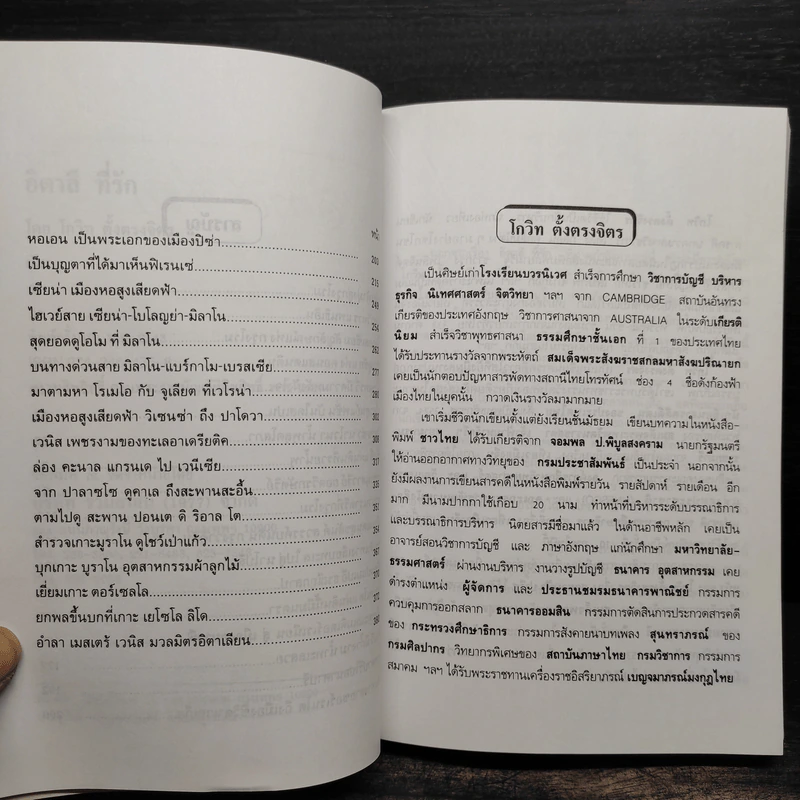 หน้า
หอเอน เป็นพระเอกของเมืองปิซ่า
เป็นบุญตาที่ได้มาเห็นฟิเรนเซ่
เซียน่า เมืองหอสูงเสียดฟ้า
ไฮเวย์สาย เซียน่า-โบโลญย่า-มิลาโน
สุดยอดดูโอโม ที่ มิลาโน
บนทางด่วนสาย มิลาโน-แบร์กาโม-เบรสเซีย
มาตามหา โรเมโอ กับ จูเลียต ที่เวโรน่า
เมืองหอสูงเสียดฟ้า วิเซนซ่า ถึง ปาโดวา
เวนิส เพชรงามของทะเลอาเดรียติค
ล่อง คะนาล แกรนเด ไป เวนีเซีย
จาก ปาลาซโซ ดูคาเล ถึงสะพานสะอื้น
ตามไปดู สะพาน ปอนเต ดิ ริอาล โต
สำรวจเกาะมูราโน ดูโชว์เป่าแก้ว
บุกเกาะ บูราโน อุตสาหกรรมผ้าลูกไม้
เยี่ยมเกาะ ตอร์เซลโล
ยกพลขึ้นบกที่เกาะ เยโซโล ลิโด
อำลา เมสเตร้ เวนิส มวลมิตรอิตาเลียน
โกวิท ตั้งตรงจิตร
เป็นศิษย์เก่าโรงเรียนบวรนิเวศ สำเร็จการศึกษา วิชาการบัญชี บริหาร
ธุรกิจ นิเทศศาสตร์ จิตวิทยา ฯลฯ จาก CAMBRIDGE สถาบันอันทรง
เกียรติของประเทศอังกฤษ วิชาการศาสนาจาก AUSTRALIA ในระดับเกียรติ
นิยม สำเร็จวิชาพุทธศาสนา ธรรมศึกษาชั้นเอก ที่ 1 ของประเทศไทย
ได้รับประทานรางวัลจากพระหัตถ์ สมเด็จพระสังฆราชสกลมหาสังฆปริณายก
เคยเป็นนักตอบปัญหาสารพัดทางสถานีไทยโทรทัศน์ ช่อง 4 ชื่อดังก้องฟ้า
เมืองไทยในยุคนั้น กวาดเงินรางวัลมามากมาย
เขาเริ่มชีวิตนักเขียนตั้งแต่ยังเรียนชั้นมัธยม เขียนบทความในหนังสือ-
พิมพ์ ชาวไทย ได้รับเกียรติจาก จอมพล ป.พิบูลสงคราม นายกรัฐมนตรี
ให้อ่านออกอากาศทางวิทยุของ กรมประชาสัมพันธ์ เป็นประจำ นอกจากนั้น
ยังมีผลงานการเขียนสารคดีในหนังสือพิมพ์รายวัน รายสัปดาห์ รายเดือน อีก
มาก มีนามปากกาใช้เกือบ 20 นาม ทำหน้าที่บริหารระดับบรรณาธิการ
และบรรณาธิการบริหาร นิตยสารมีชื่อมาแล้ว ในด้านอาชีพหลัก เคยเป็น
อาจารย์สอนวิชาการบัญชี และ ภาษาอังกฤษ แก่นักศึกษา มหาวิทยาลัย-
ธรรมศาสตร์ ผ่านงานบริหาร งานวางรูปบัญชี ธนาคาร อุตสาหกรรม เคย
ดำรงตำแหน่ง ผู้จัดการ และ ประธานชมรมธนาคารพาณิชย์ กรรมการ
ควบคุมการออกสลาก ธนาคารออมสิน กรรมการตัดสินการประกวดสารคดี
ของ กระทรวงศึกษาธิการ กรรมการสังคายนาบทเพลง สุนทราภรณ์ ของ
กรมศิลปากร วิทยากรพิเศษของ สถาบันภาษาไทย กรมวิชาการ กรรมการ
สมาคม ฯลฯ ได้รับพระราชทานเครื่องราชอิสริยาภรณ์ เบญจมาภรณ์มงกุฎไทย